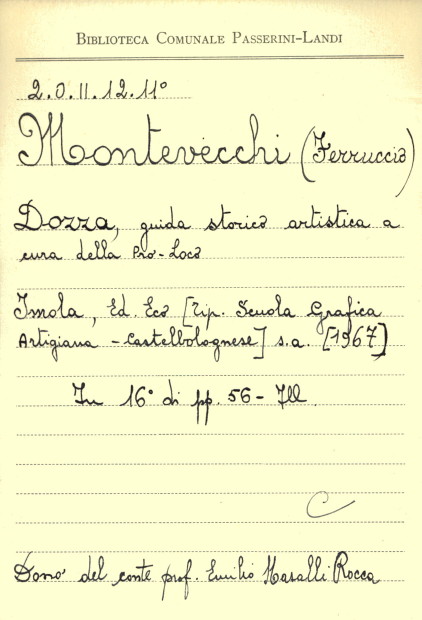 BIBLIOTECA COMUNALE PASSERINI-LANDI
2.O.II.12.11°
Montevecchi (Ferruccio)
Dozza, guida storico artistica a
cura della Pro-Loco
Imola, Ed. Eco [Tip. Scuola Grafica
Artigiana - Castelbolognese] s.a. [1967]
In 16° di pp. 56 - Ill.
C
Dono del conte prof. Emilio Nasalli Rocca